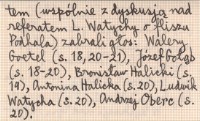 tem (wspólnie z dyskusją nad
referatem L. Watychy o fliszu
Podhala) zabrali głos: Walery
Goetel (s. 18, 20-21), Józef Gołąb
(s. 18-20), Bronisław Halicki (s.
19), Antonina Halicka (s. 20), Ludwik
Watycha (s. 20), Andrzej Oberc (s.
20).